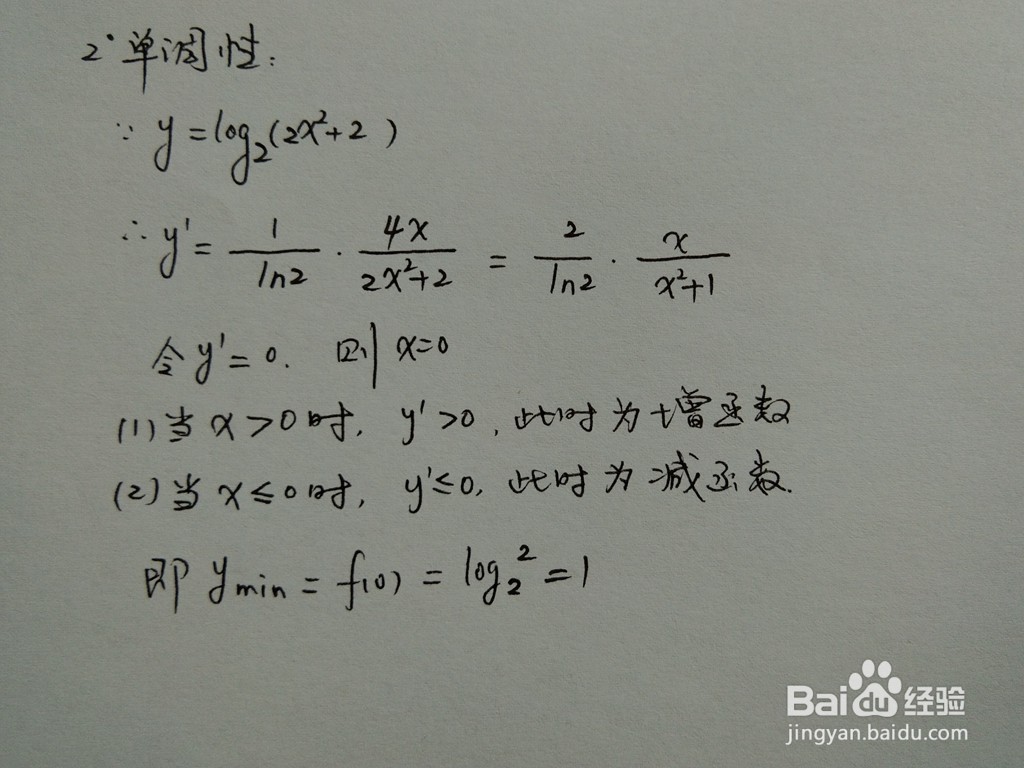 2° 单调性:
∵ y = log₂(2x²+2)
∴ y' = 1/ln2 · 4x/2x²+2 = 2/ln2 · x/x²+1
令 y' = 0. 则 x=0
(1) 当 x > 0 时, y' > 0, 此时为增函数
(2) 当 x ≤ 0 时, y' ≤ 0, 此时为减函数.
即 ymin = f(0) = log₂² = 1
Bai 经验
jingyan.baidu.com